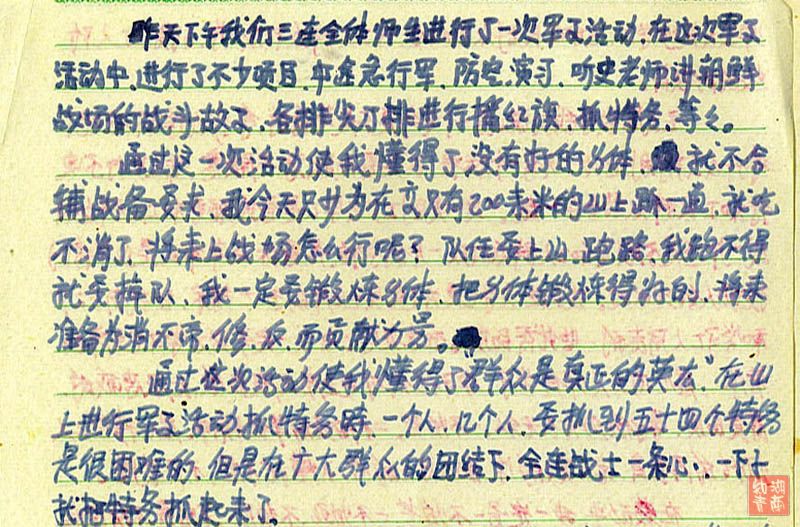 昨天下午我们三连全体师生进行了一次军事活动.在这次军事
活动中.进行了不少项目.中途急行军.防空.演习.听史老师讲朝鲜
战场的战斗故事.各排尖刀排进行插红旗.抓特务.等々。
通过这一次活动使我懂得了.没有好的身体.就不合
辅战备要求.我今天只少为在交只有200来米的山上跑一直.就吃
不消了.将来上战场怎么行呢?队伍要上山.跑路.我跑不得
就要掉队.我一定要锻炼身体.把身体锻炼得好的.将来
准备为消灭帝.修.反.而贡献力量。
通过这次活动使我懂得了“群众是真正的英雄”.在山
上进行军事活动.抓特务時.一个人.几个人.要抓到五十四个特务
是很困难的.但是在广大群众的团结下.全连战士一条心.一下子
就把特务抓起来了。